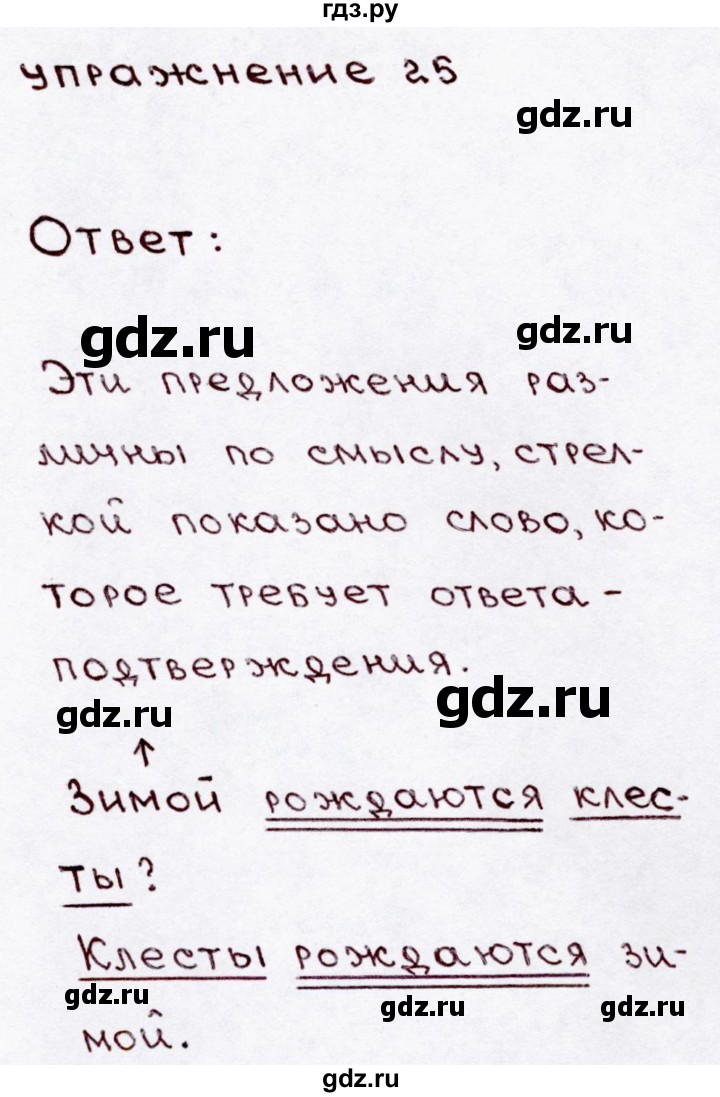 гдз.ру
упражнение 25
gdz.ru
Ответ:
gdz.ru
gdz.ru
Эти предложения раз-
личны по смыслу, стрел-
кой показано слово, ко-
торое требует ответа -
подтверждения.
gdz.ru
gdz.ru
↑
Зимой рождаются клес-
ты?
Клесты рождаются зи-
gdz.ru
gdz.ru
gdz.ru
мой.
gdz.ru